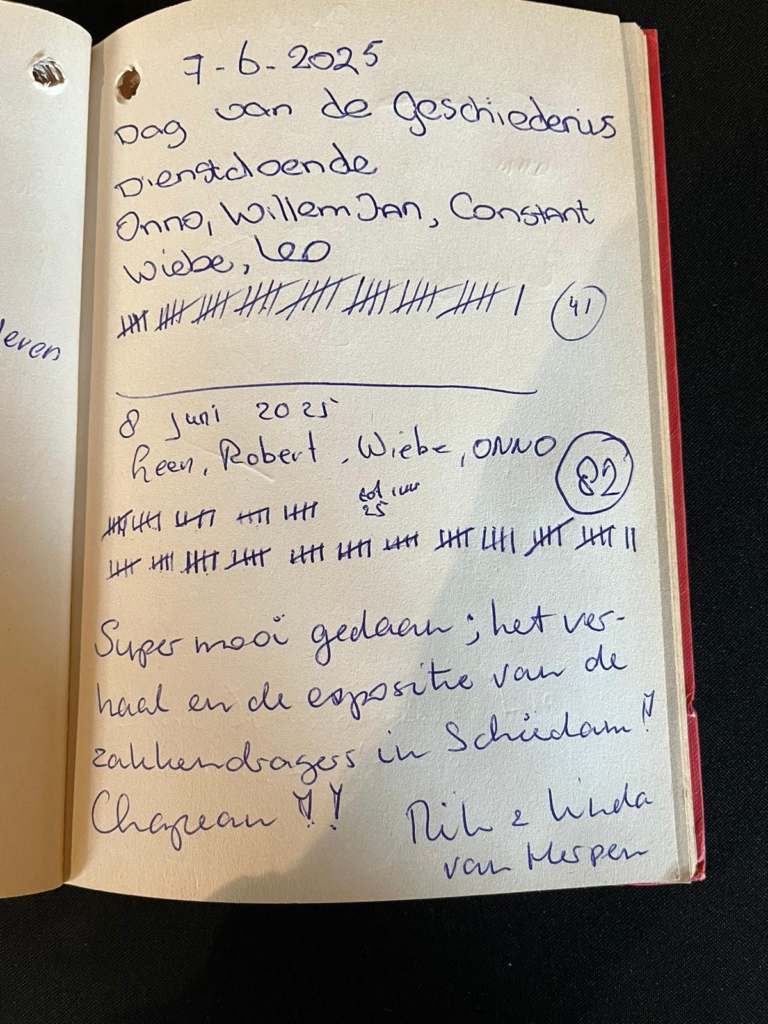 even
7-6-2025
Dag van de Geschiedenis
Dienstdoende
Onno, Willem Jan, Constant
Wiebe, Leo
41
8 juni 2025
Leen, Robert, Wiebe, ONNO
82
tot uur
25
Super mooi gedaan; het ver-
haal en de expositie van de
zakkendragers in Schiedam!!
Chapeau!!
Rik & Linda
van Herpen